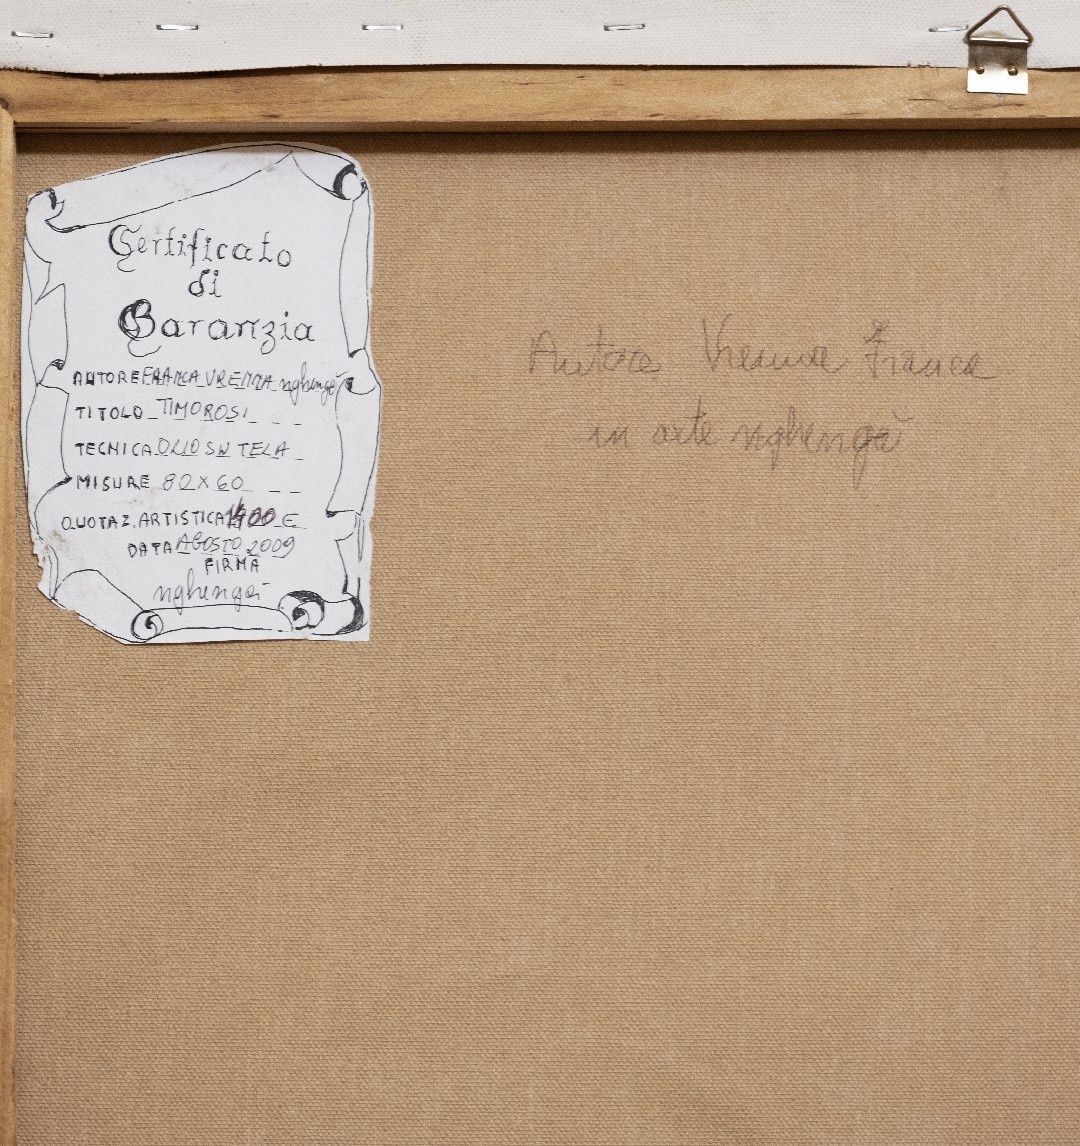 Certificato
di
Garanzia
AUTORE FRANCA VRENNA nghengă
TITOLO TIMOROSI
TECNICA OLIO SU TELA
MISURE 80 X 60
QUOTAZ. ARTISTICA €
DATA AGOSTO 2009
FIRMA
nghengă
Autore Vrenna Franca
in arte nghengă